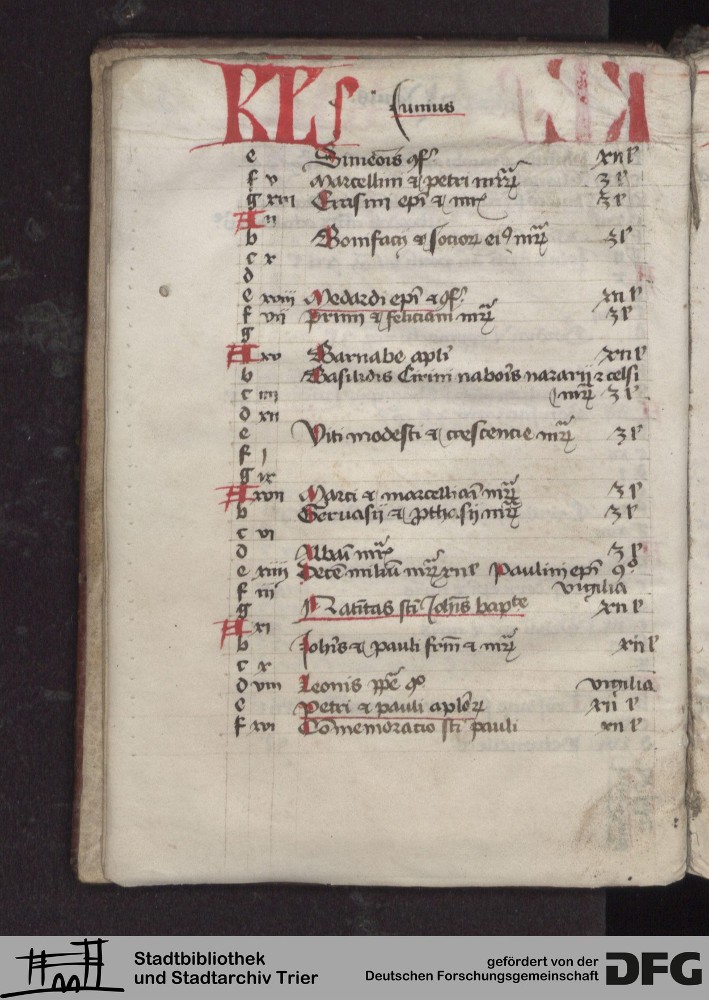 KL Iunius
e Simeonis 9f xii l
f v Marcellini & petri mrꝝ 3 l
g xvi Erasmi epi & mr 3 l
A ii
b Bonifacij & socior eiꝰ mrꝝ 3 l
c x
d
e xviii Medardi epi & 9f xii l
f vii Primi & feliciani mrꝝ 3 l
g
A xv Barnabe apli xii l
b Basilidis Cirini nabois nazarij & celsi
c iiii mrꝝ 3 l
d xii
e Viti modesti & crescencie mrꝝ 3 l
f j
g ix
A xvii Marci & marcelliani mrꝝ 3 l
b Geruasij & pthasij mrꝝ 3 l
c vi
d Albani mr 3 l
e xiiii Decē miliū mrꝝ xii l Paulini epi 9o
f iii vigilia
g Natiuitas sti Iohis bapte xii l
A xi
b Iohis & pauli frm & mrꝝ xii l
c x
d viii Leonis ppe 9o vigilia
e Petri & pauli aploꝝ xii l
f xvi Cōmemoracio sti pauli xii l
Stadtbibliothek
und Stadtarchiv Trier
gefördert von der
Deutschen Forschungsgemeinschaft DFG